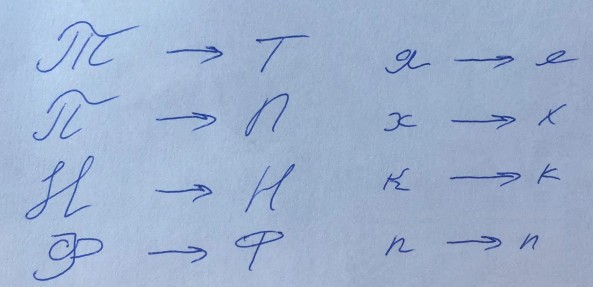 Т → Т я → е
П → П х → х
Н → Н к → к
Ф → Ф п → п